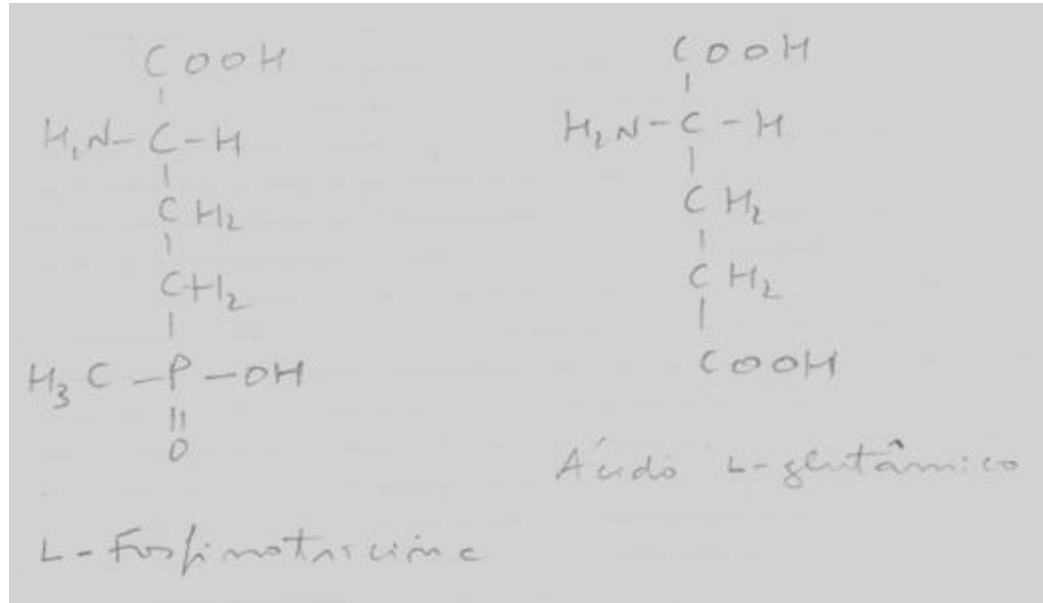 COOH
H₂N-C-H
CH₂
CH₂
H₃C-P-OH
O
L-Fosfinotricina
COOH
H₂N-C-H
CH₂
CH₂
COOH
Ácido L-glutâmico